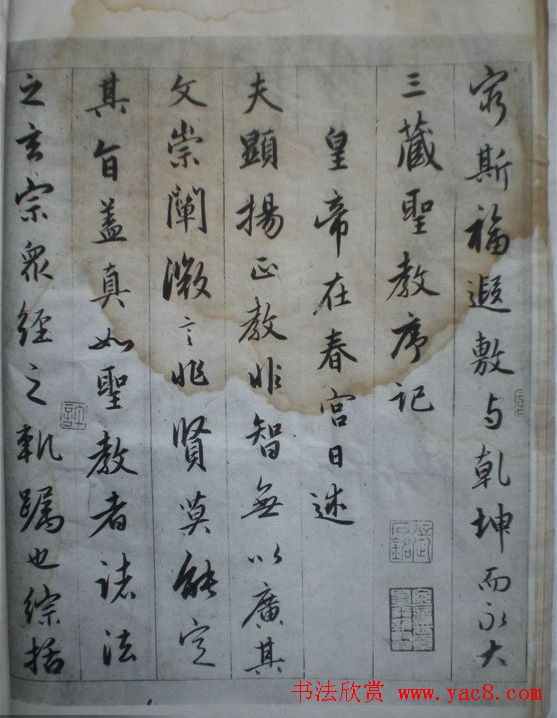 窮斯福遐敷与乾坤而永大
三藏聖教序记
皇帝在春宫日述
夫顯揚正教非智無以廣其
文崇闡微言非賢莫能定
其旨盖真如聖教者諸法
之玄宗眾經之軌躅也綜括
书法欣赏 www.yac8.com